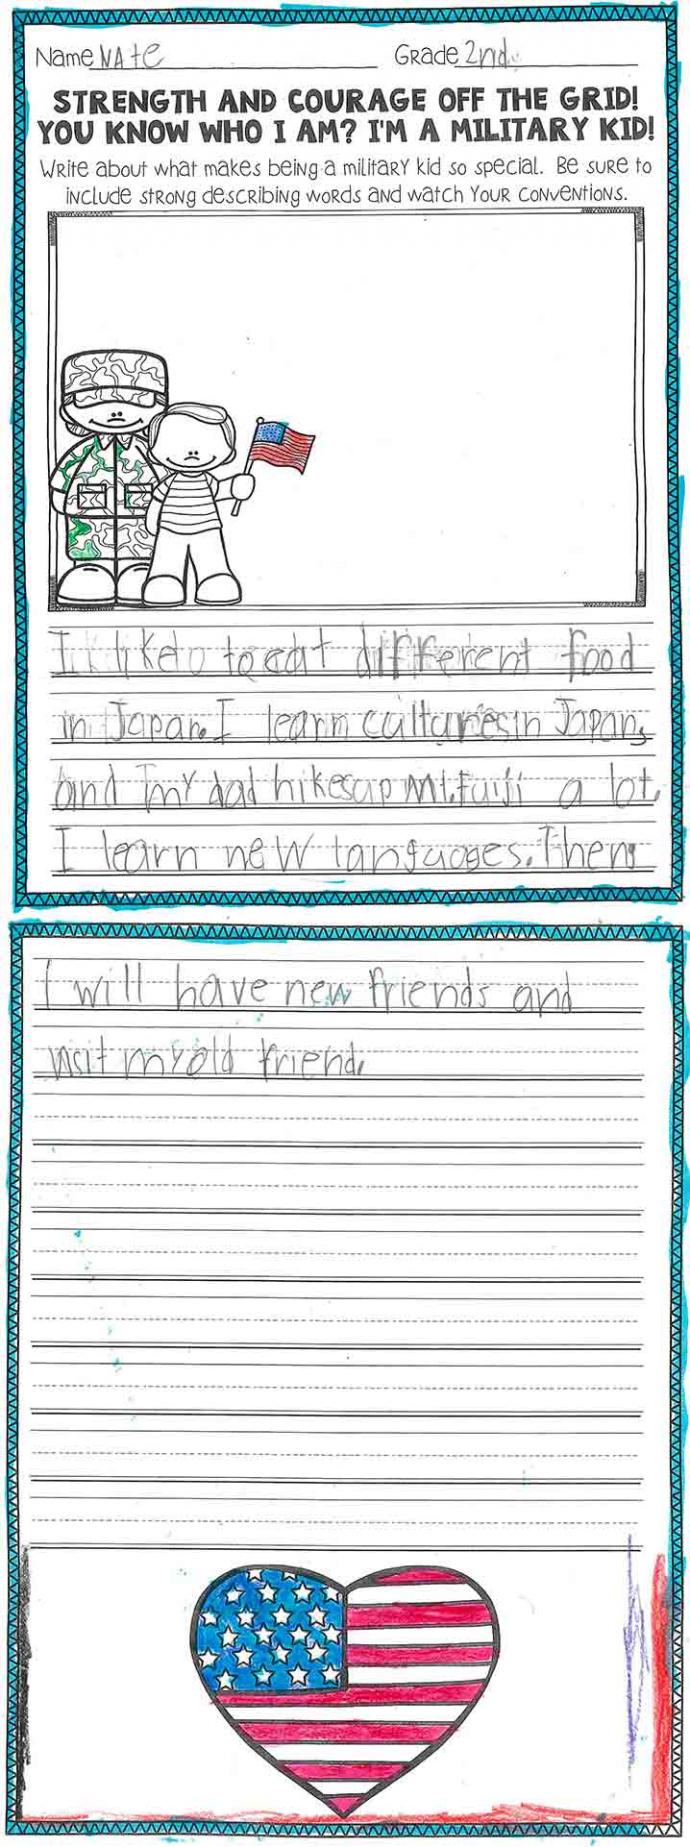 Name NAte Grade 2nd.
STRENGTH AND COURAGE OFF THE GRID!
YOU KNOW WHO I AM? I'M A MILITARY KID!
Write about what makes being a military kid so special. Be sure to
include strong describing words and watch your conventions.
I like to eat different food
in Japan. I learn cultures in Japan,
and my dad hikes up Mt. Fuiji a lot.
I learn new languages. Then
I will have new friends and
visit my old friend.